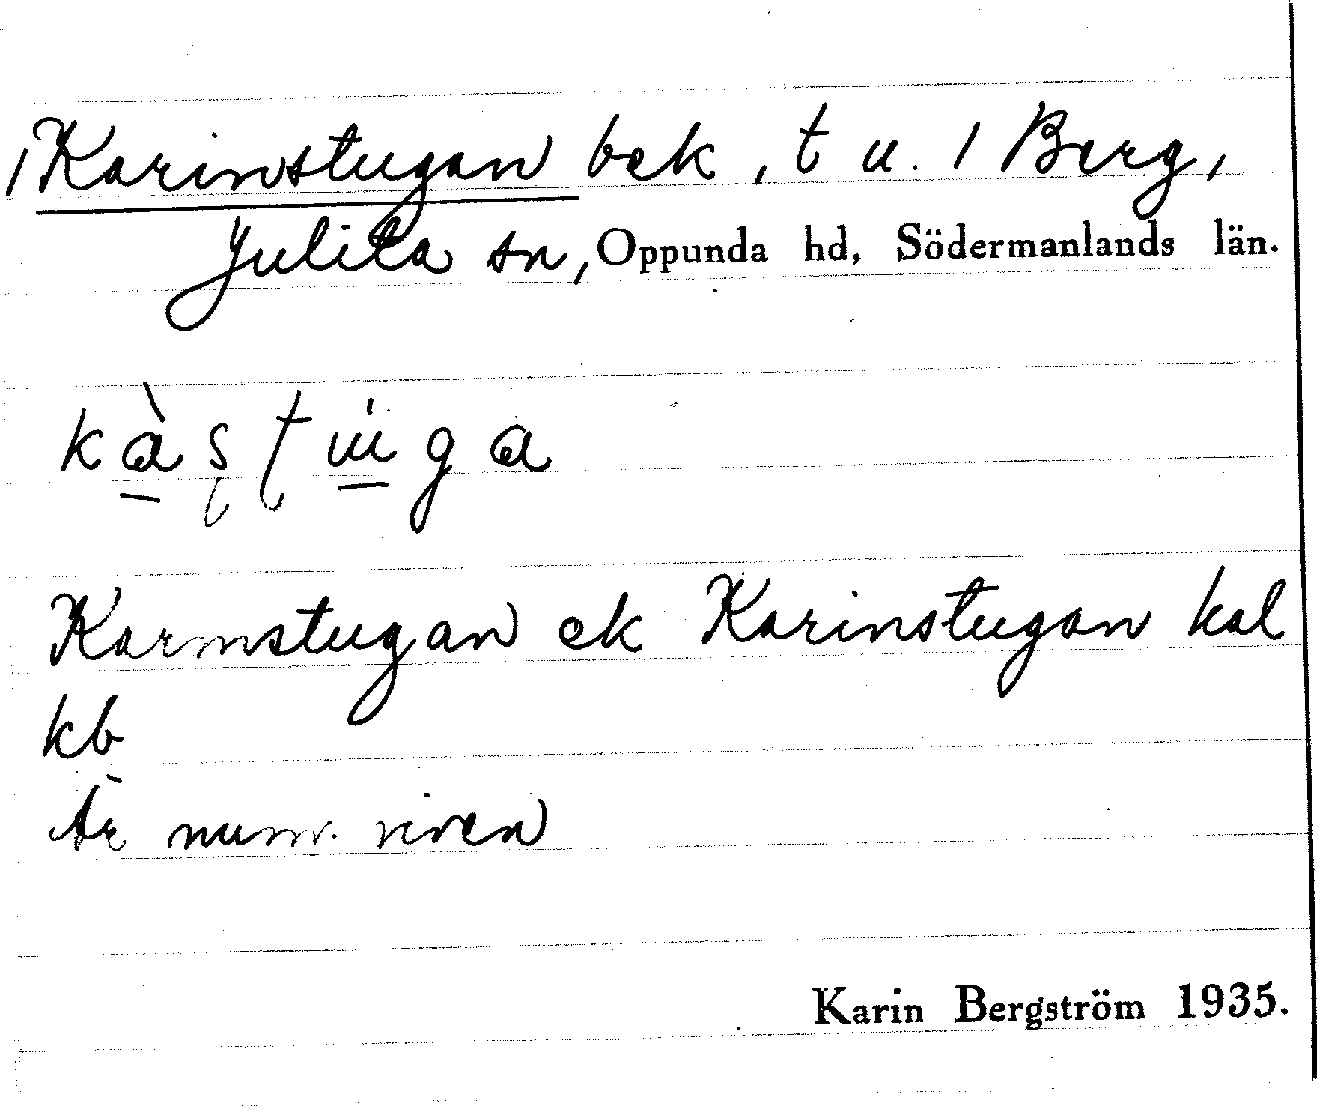 /Karinstugan bek, t u. / Berg,
Julita sn, Oppunda hd, Södermanlands län.
kàstüga
Karinstugan ek Karinstugan kal
kb
Är num. riven
Karin Bergström 1935.